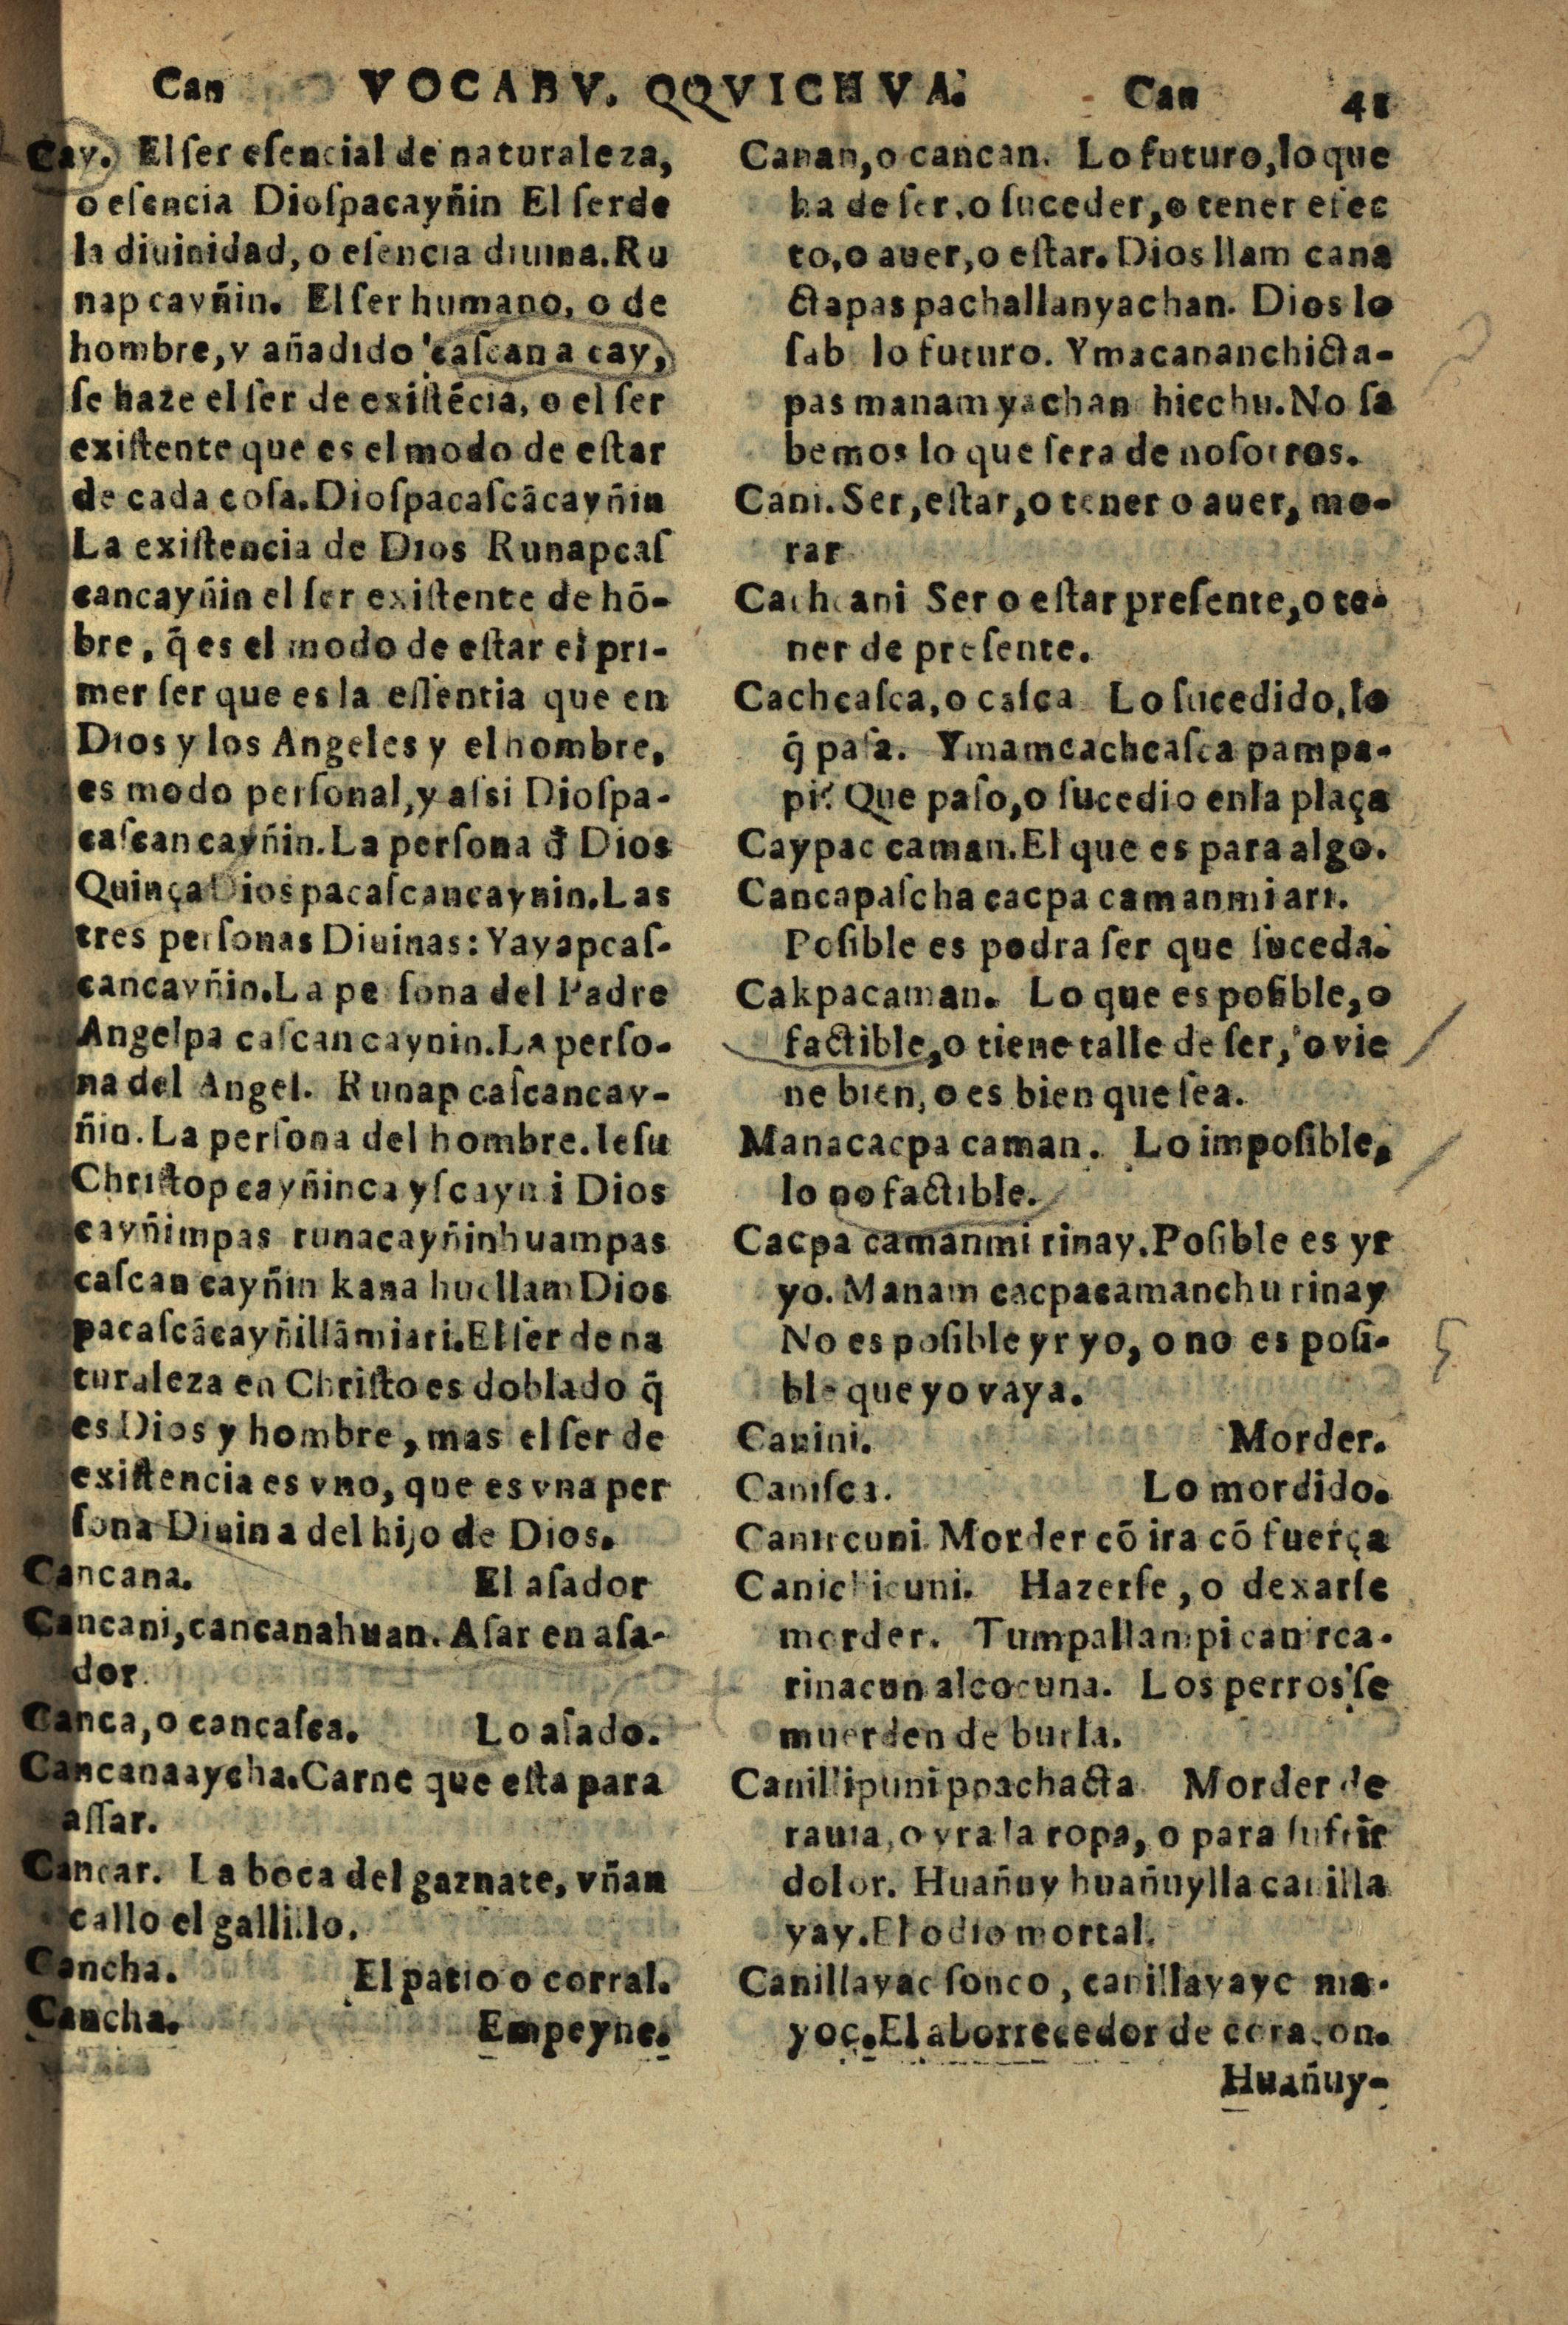 Can VOCABV. QQVICHVA. Can 41
Cay. El ser esencial de naturaleza,
o esencia Diospacayñin El ser de
la diuinidad, o esencia diuina. Ru
nap cayñin. El ser humano, o de
hombre, y añadido cascana cay,
se haze el ser de existẽcia, o el ser
existente que es el modo de estar
de cada cosa. Diospacascãcayñin
La existencia de Dios Runapcas
cancayñin el ser existente de hõ-
bre, q̃ es el modo de estar el pri-
mer ser que es la essentia que en
Dios y los Angeles y el hombre,
es modo personal, y assi Diospa-
cascancayñin. La persona đ Dios
Quinça Dios pacascancaynin. Las
tres personas Diuinas: Yayapcas-
cancayñin. La pe sona del Padre
Angelpa cascancaynin. La perso-
na del Angel. Runap cascancay-
ñin. La persona del hombre. Iesu
Christop cayñinca yscayni Dios
cayñimpas runacayñinhuampas
cascan cayñin kana huellam Dios
pacascãcayñillãmiari. El ser de na
turaleza en Christo es doblado q̃
es Dios y hombre, mas el ser de
existencia es vno, que es vna per
sona Diuina del hijo de Dios.
Cancana. El asador
Cancani, cancanahuan. Asar en asa-
dor
Canca, o cancasca. Lo asado.
Cancanaaycha. Carne que esta para
assar.
Cancar. La boca del gaznate, vñan
callo el gallillo.
Cancha. El patio o corral.
Cancha. Empeyne.
Canan, o cancan. Lo futuro, lo que
ha de ser, o suceder, o tener efec
to, o auer, o estar. Dios llam cana
ctapas pachallanyachan. Dios lo
sab lo futuro. Ymacananchicta-
pas manam yachan hicchu. No sa
bemos lo que sera de nosotros.
Cani. Ser, estar, o tener o auer, mo-
rar
Cachcani Ser o estar presente, o te-
ner de presente.
Cachcasca, o casca Lo sucedido, lo
q̃ pasa. Ymamcachcasca pampa-
pi? Que paso, o sucedio enla plaça
Caypac caman. El que es para algo.
Cancapascha cacpa camanmi ari.
Posible es podra ser que suceda.
Cakpacaman. Lo que es posible, o
factible, o tiene talle de ser, o vie
ne bien, o es bien que sea.
Manacacpa caman. Lo imposible,
lo no factible.
Cacpa camanmi rinay. Posible es yr
yo. Manam cacpacamanchu rinay
No es posible yr yo, o no es posi-
ble que yo vaya.
Canini. Morder.
Canisca. Lo mordido.
Canircuni. Morder cõ ira cõ fuerça
Canichicuni. Hazerse, o dexarse
morder. Tumpallampi canirca-
rinacun alcocuna. Los perros se
muerden de burla.
Canillipuni ppachacta Morder de
rauia, o yra la ropa, o para sufrir
dolor. Huañuy huañuylla canilla
yay. El odio mortal.
Canillayac sonco, canillayayc ma-
yoc. El aborrecedor de coraçon.
Huañuy-